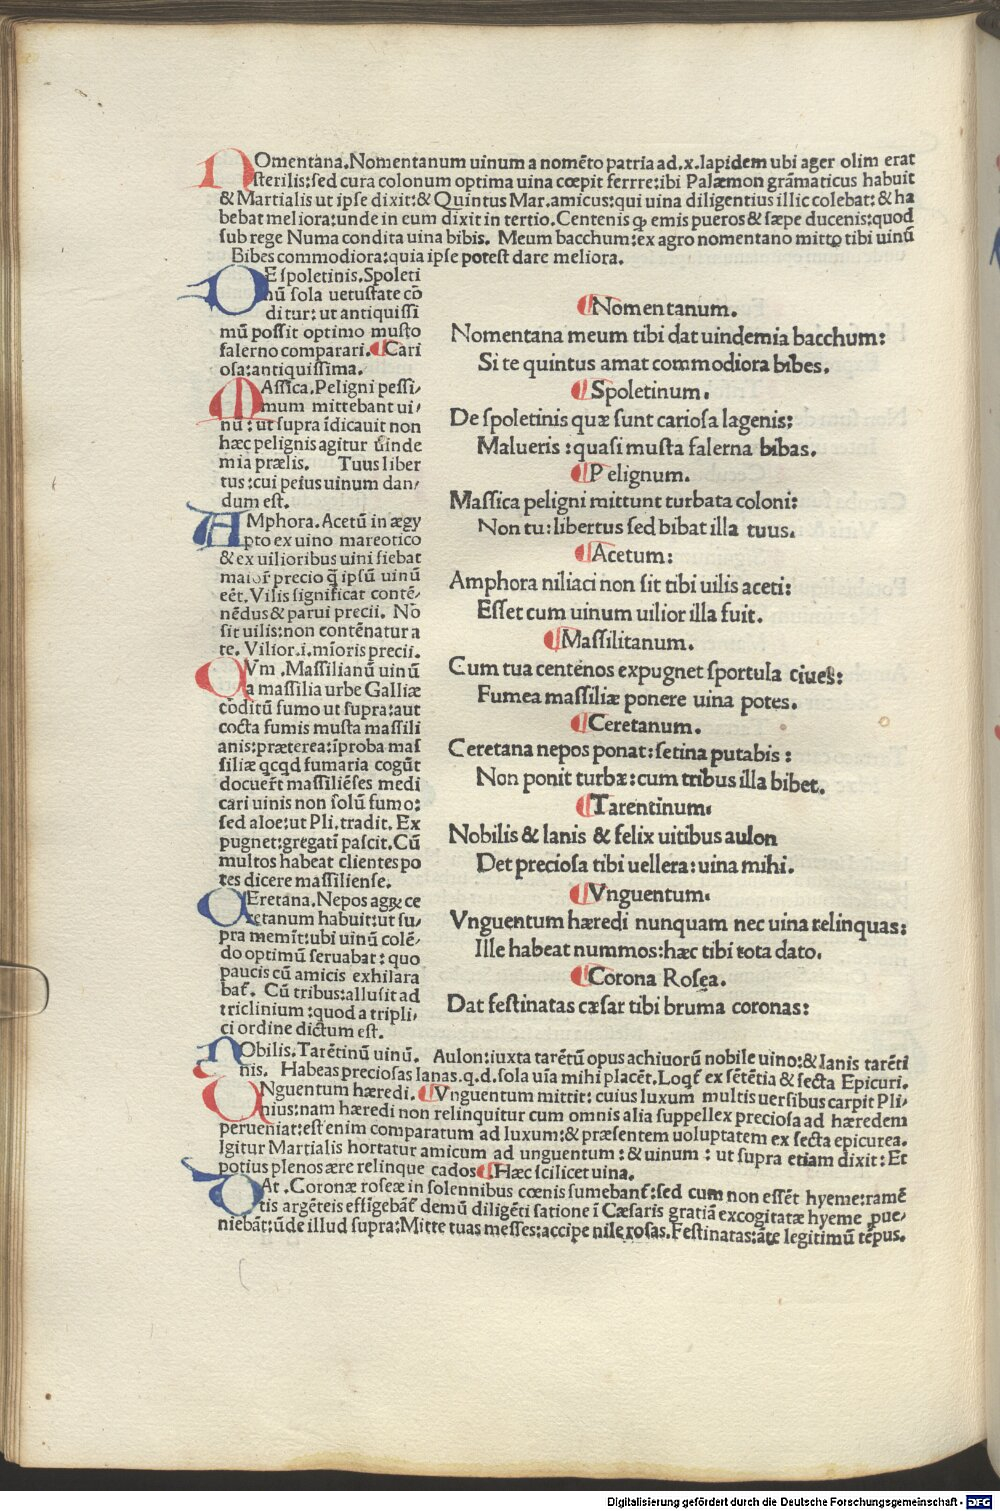 NOmentana.Nomentanum uinum a nomēto patria ad.x.lapidem ubi ager olim erat
sterilis:sed cura colonum optima uina cœpit ferrre:ibi Palæmon grāmaticus habuit
& Martialis ut ipse dixit:& Quintus Mar.amicus:qui uina diligentius illic colebat:& ha
bebat meliora:unde in eum dixit in tertio.Centenis ꝙ emis pueros & sæpe ducenis:quod
sub rege Numa condita uina bibis. Meum bacchum:ex agro nomentano mitto tibi uinū
Bibes commodiora:quia ipse potest dare meliora.
DE spoletinis.Spoleti
nū sola uetustate cō
ditur:ut antiquissi
mū possit optimo musto
falerno comparari.¶Cari
osa:antiquissima.
MAssica.Peligni pessi/
mum mittebant ui/
nū:ut supra idicauit non
hæc pelignis agitur ūinde
mia prælis. Tuus liber
tus:cui peius uinum dan/
dum est.
AMphora.Acetū in ægy
pto ex uino mareotico
& ex uilioribus uini fiebat
maior̄ precio q̄ ipsū uinū
eēt.Vilis significat contē/
nēdus & parui precii. No
sit uilis:non contēnatur a
te.Vilior.i.mīoris precii.
CVm .Massilianū uinū
a massilia urbe Galliæ
cōditū fumo ut supra:aut
cocta fumis musta massili
anis:præterea:īproba mas
siliæ qcqd fumaria cogūt
docuer̄t massiliēses medi
cari uinis non solū fumo:
sed aloe:ut Pli.tradit. Ex
pugnet:gregatī pascit.Cū
multos habeat clientes po
tes dicere massiliense.
CEretana.Nepos agg̃ ce
retanum habuit:ut su/
pra memīt:ubi uinū colē/
do optimū seruabat:quo
paucis cū amicis exhilara
bat̄. Cū tribus:allusit ad
triclinium:quod a tripli/
ci ordine dictum est.
¶Nomentanum.
Nomentana meum tibi dat uindemia bacchum:
Si te quintus amat commodiora bibes.
¶Spoletinum.
De spoletinis quæ sunt cariosa lagenis:
Malueris:quasi musta falerna bibas.
¶Pelignum.
Massica peligni mittunt turbata coloni:
Non tu:libertus sed bibat illa tuus.
¶Acetum:
Amphora niliaci non sit tibi uilis aceti:
Esset cum uinum uilior illa fuit.
¶Massilitanum.
Cum tua centenos expugnet sportula ciues:
Fumea massiliæ ponere uina potes.
¶Ceretanum.
Ceretana nepos ponat:setina putabis:
Non ponit turbæ:cum tribus illa bibet.
¶Tarentinum.
Nobilis & lanis & felix uitibus aulon
Det preciosa tibi uellera:uina mihi.
¶Vnguentum.
Vnguentum hæredi nunquam nec uina relinquas:
Ille habeat nummos:hæc tibi tota dato.
¶Corona Rosea.
Dat festinatas cæsar tibi bruma coronas:
NObilis.Tarētinū uinū. Aulon:iuxta tarētū opus achiuorū nobile uino:& lanis tarēti
nis. Habeas preciosas lanas.q.d.sola uīa mihi placēt.Loqt̄ ex sētētia & secta Epicuri.
VNguentum hæredi.¶Vnguentum mittit:cuius luxum multis uersibus carpit Pli/
nius:nam hæredi non relinquitur cum omnis alia suppellex preciosa ad hæredem
perueniat:est enim comparatum ad luxum:& præsentem uoluptatem ex secta epicurea.
Igitur Martialis hortatur amicum ad unguentum:& uinum:ut supra etiam dixit:Et
potius plenos ære relinque cados¶Hæc scilicet uina.
DAt.Coronæ roseæ in solennibus cœnis sumebant̄:sed cum non essēt hyeme:ramē
tis argēteis effigebāt̄ demū diligēti satione ī Cæsaris gratiā excogitatæ hyeme pue/
niebāt:ūde illud supra:Mitte tuas messes:accipe nile rosas.Festinatas:āte legitimū tēpus.
Digitalisierung gefördert durch die Deutsche Forschungsgemeinschaft - DFG